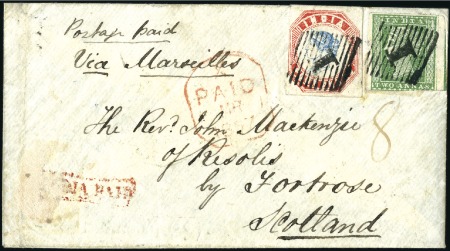 Postage paid
Via Marseilles
INDIA
INDIA
TWO ANNAS
1
1
PAID
8
The Revd. John Mackenzie
of Resolis
by Fortrose
Scotland
PAID